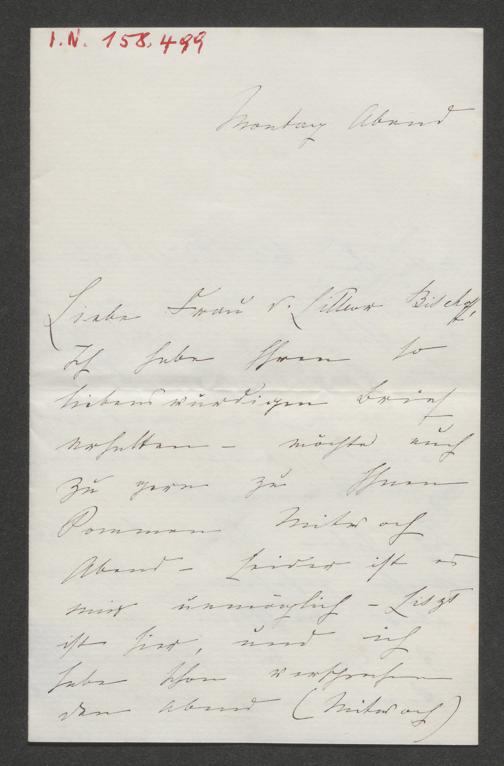 I.N. 158.499
Montag Abend
Liebe Frau v. Littrow Bischoff,
Ich habe Ihren so
liebenswürdigen Brief
erhalten – möchte auch
zu gern zu Ihnen
kommen Mitwoch
Abend – leider ist es
mir unmöglich – Liszt
ist hier, und ich
habe schon versprochen
den Abend (Mitwoch)